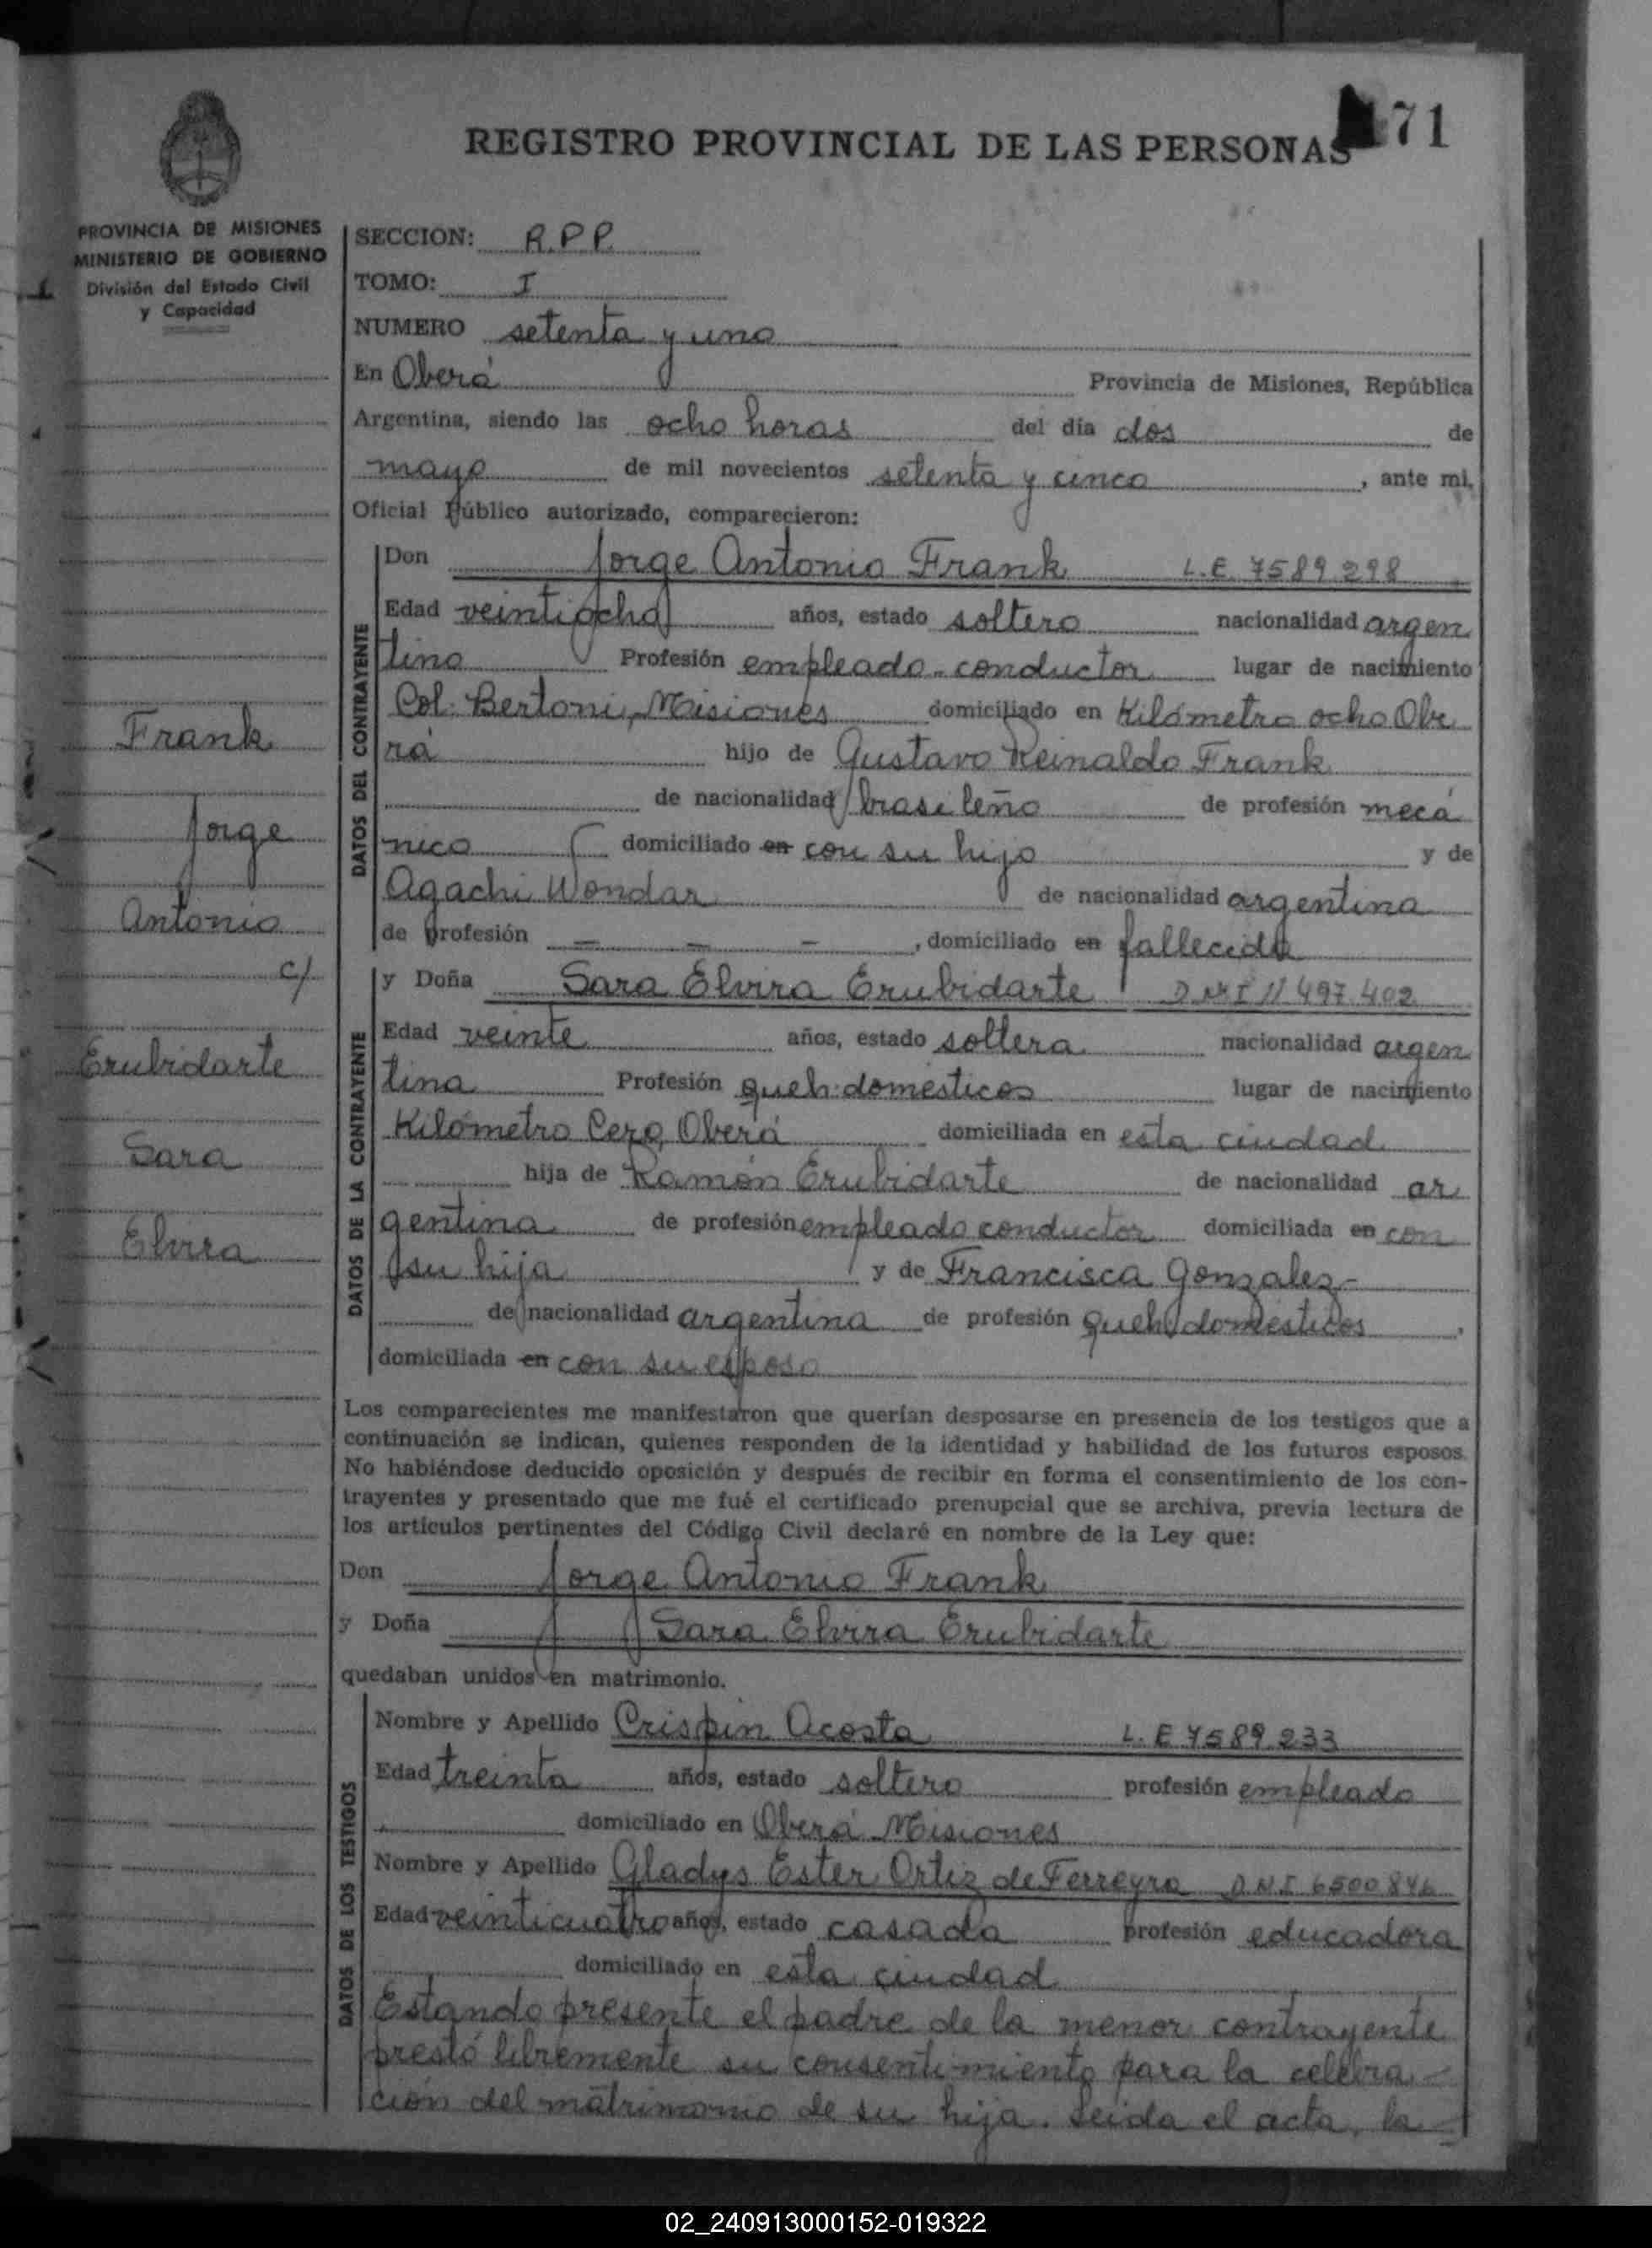 71
REGISTRO PROVINCIAL DE LAS PERSONAS
PROVINCIA DE MISIONES
MINISTERIO DE GOBIERNO
División del Estado Civil
y Capacidad
SECCION: R.P.P.
TOMO: I
NUMERO setenta y uno
En Oberá Provincia de Misiones, República
Argentina, siendo las ocho horas del día dos de
mayo de mil novecientos setenta y cinco, ante mi,
Oficial Público autorizado, comparecieron:
DATOS DEL CONTRAYENTE
Don Jorge Antonio Frank L.E. 7589.298
Edad veintiocho años, estado soltero nacionalidad argen
tino Profesión empleado-conductor lugar de nacimiento
Col. Bertoni, Misiones domiciliado en Kilómetro ocho Obe
rá hijo de Gustavo Reinaldo Frank
de nacionalidad brasileño de profesión mecá
nico domiciliado en con su hijo y de
Agachi Wondar de nacionalidad argentina
de profesión — — —, domiciliado en fallecida
Frank
Jorge
Antonio
c/
Erubidarte
Sara
Elvira
DATOS DE LA CONTRAYENTE
y Doña Sara Elvira Erubidarte D.N.I 11497.402
Edad veinte años, estado soltera nacionalidad argen
tina Profesión queh. domésticos lugar de nacimiento
Kilómetro Cero, Oberá domiciliada en esta ciudad
hija de Ramón Erubidarte de nacionalidad ar
gentina de profesión empleado conductor domiciliada en con
su hija y de Francisca Gonzalez
de nacionalidad argentina de profesión queh. domésticos,
domiciliada en con su esposo
Los comparecientes me manifestaron que querían desposarse en presencia de los testigos que a
continuación se indican, quienes responden de la identidad y habilidad de los futuros esposos.
No habiéndose deducido oposición y después de recibir en forma el consentimiento de los con-
trayentes y presentado que me fué el certificado prenupcial que se archiva, previa lectura de
los artículos pertinentes del Código Civil declaré en nombre de la Ley que:
Don Jorge Antonio Frank
y Doña Sara Elvira Erubidarte
quedaban unidos en matrimonio.
DATOS DE LOS TESTIGOS
Nombre y Apellido Crispin Acosta L.E 7589.233
Edad treinta años, estado soltero profesión empleado
domiciliado en Oberá Misiones
Nombre y Apellido Gladys Ester Ortiz de Ferreyra D.N.I 6500846
Edad veinticuatro años, estado casada profesión educadora
domiciliado en esta ciudad
Estando presente el padre de la menor contrayente
prestó libremente su consentimiento para la celebra-
ción del matrimonio de su hija. Leida el acta, la
02_240913000152-019322